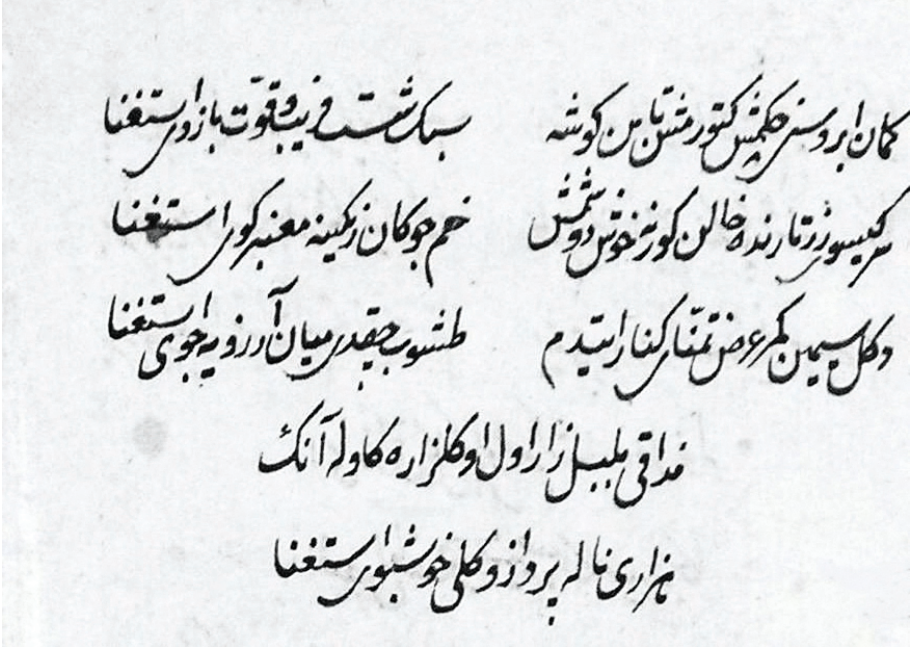 كمان ابروسنى چكمش كتورمش تا بن كوشه سبك شست فريب و قوّت بازوى استغنا
سر كيسوى زرتارنده خالن كورنه خوش دوشمش خم چوكان رنكينه معنبر كوى استغنا
دكل سيمين كمر عرض تمنّاى كنار ايتدم طشوب چيقدى ميان آرزويه جوى استغنا
مذاقى بلبل زار اول او كلزاره كاوله آنك
هزارى ناله پرداز و كلى خوشبوى استغنا